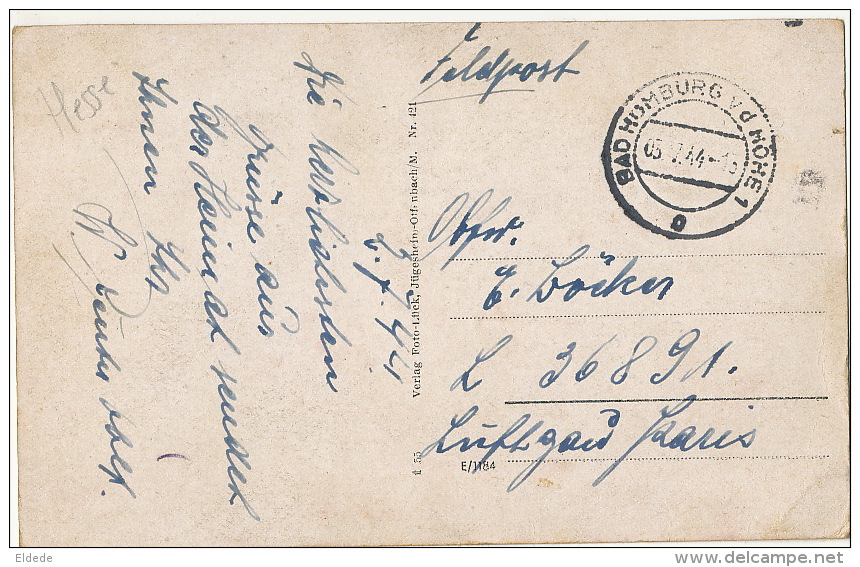 Hesse
Feldpost
BAD HOMBURG v d HÖHE 1
05. 7.44-15
a
2. 7. 44
Die herzlichsten
Grüsse aus
der Heimat sendet
Ihnen Ihr
W.
Obfw.
E. Böcker
L 36891.
Luftgau Paris
Verlag Foto-Lück, Jügesheim-Offenbach/M. Nr. 421
E/1184
Eldede
delcampe.net